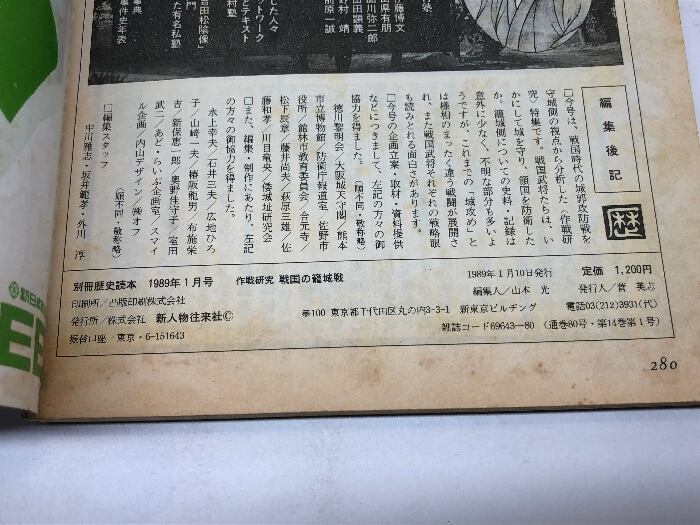 編集後記
歴
□今号は、戦国時代の城郭攻防戦を
守城側の視点から分析した〈作戦研
究〉特集です。戦国武将たちは、い
かにして城を守り、領国を防衛した
か。籠城側についての史料・記録は
意外に少なく、不明な部分も多いよ
うですが、これまでの「城攻め」と
は様相のまったく違う戦闘が展開さ
れ、また戦国武将それぞれの戦略眼
も読みとれる面白さがあります。
□今号の企画立案・取材・資料提供
などにつきまして、左記の方々の御
協力を得ました。（順不同・敬称略）
徳川黎明会／大阪城天守閣／熊本
市立博物館／防衛庁報道室／佐野市
役所／館林市教育委員会／合元寺／
松下辰章／藤井尚夫／萩原三雄／佐
藤和孝／川目竜央／倭城址研究会
□また、編集・制作にあたり、左記
の方々の御協力を得ました。
水上幸夫／石井三夫／広地ひろ
子／山崎一夫／椿阪龍男／布施栄
吉／新保恵一郎／奥野佳守子／室田
武二／あど・らいぶ企画室／スマイ
ル企画／内山デザイン／㈱オフ
（順不同・敬称略）
□編集スタッフ
中川雅志・坂井範孝・外川 淳
佐藤博文
山県有朋
品川弥二郎
山田顕義
野村 靖
前原一誠
した人々
ットワーク
とテキスト
村塾
吉田松陰像
門
た有名私塾
事典
事件史年表
別冊歴史読本 1989年1月号 作戦研究 戦国の籠城戦
1989年1月10日発行 定価 1,200円
印刷所／凸版印刷株式会社
編集人／山本 光 発行人／菅 英志
発行所／株式会社 新人物往来社©
〒100 東京都千代田区丸の内3-3-1 新東京ビルヂング 電話03(212)3931(代)
振替口座／東京・6-151643
雑誌コード69643-80 〈通巻80号・第14巻第1号〉
280